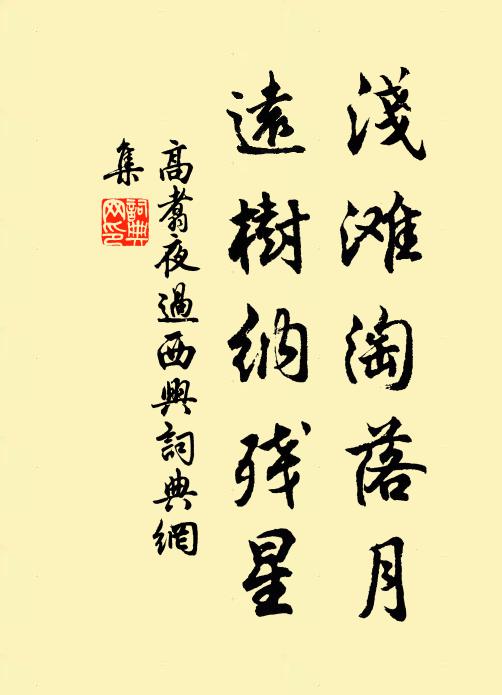 淺滩淘落月
遠樹纳残星
高翥夜過西興詞典網
集
詞典
网印